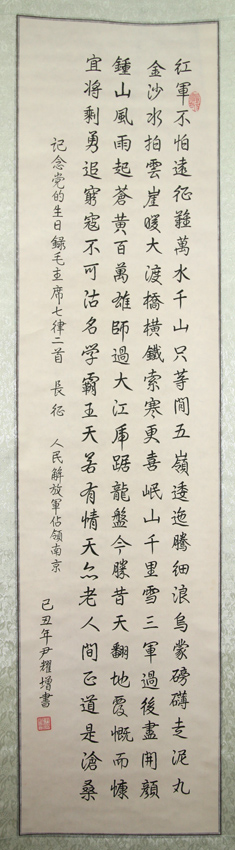 红軍不怕遠征難萬水千山只等閒五嶺逶迤騰细浪烏蒙磅礴走泥丸
金沙水拍雲崖暖大渡橋横鐵索寒更喜岷山千里雪三軍過後盡開顔
鍾山風雨起蒼黄百萬雄師過大江虎踞龍盤今勝昔天翻地覆慨而慷
宜将剩勇追窮寇不可沽名学霸王天若有情天亦老人間正道是滄桑
记念党的生日録毛主席七律二首 長征 人民解放軍佔領南京
己丑年尹耀增書